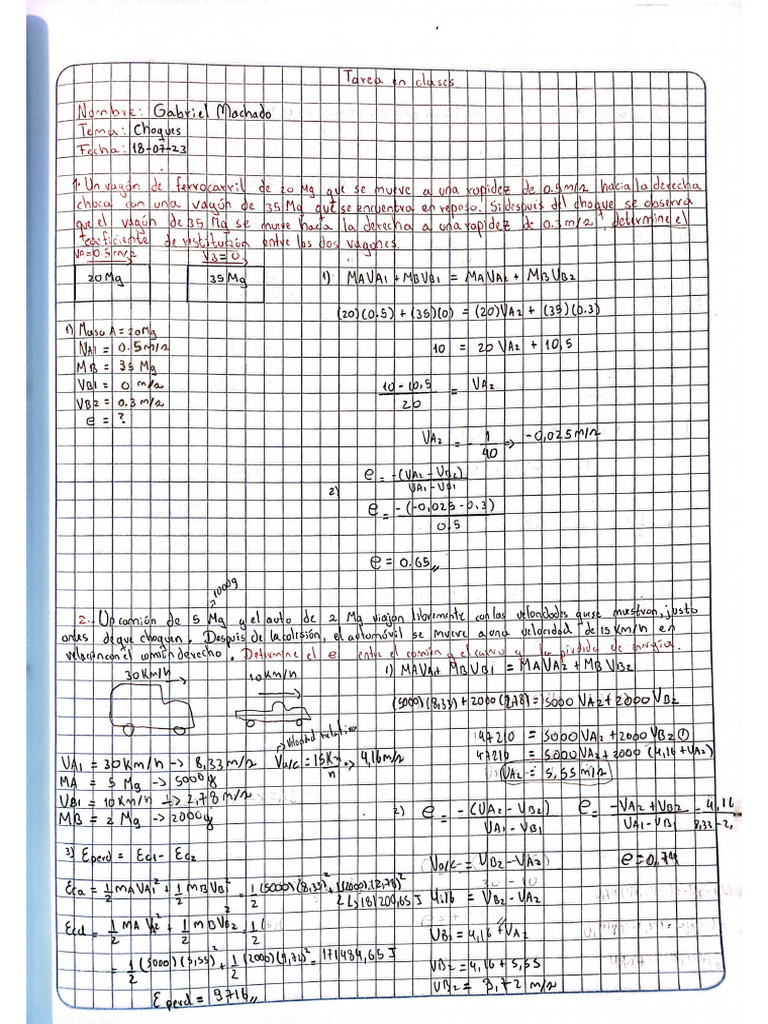 Tarea en clases
Nombre: Gabriel Machado
Tema: Choques
Fecha: 18-07-23
1. Un vagón de ferrocarril de 20 Mg que se mueve a una rapidez de 0.5m/s hacia la derecha
choca con una vagón de 35 Mg que se encuentra en reposo. Si después del choque se observa
que el vagón de 35 Mg se mueve hacia la derecha a una rapidez de 0.3 m/s, determine el
coeficiente de restitución entre los dos vagones.
VA=0.5m/s VB=0
20Mg 35Mg
1) Masa A=20Mg
VA1 = 0.5m/s
MB = 35 Mg
VB1 = 0 m/s
VB2 = 0.3 m/s
e = ?
1) MAVA1 + MBVB1 = MAVA2 + MBVB2
(20)(0.5) + (35)(0) = (20)VA2 + (35)(0.3)
10 = 20 VA2 + 10,5
10-10,5 / 20 = VA2
VA2 = -1/40 => -0,025m/s
2) e = -(VA2-VB2) / VA1-VB1
e = -(-0,025-0.3) / 0.5
e = 0.65,,
1000g
2.- Un camión de 5 Mg y el auto de 2 Mg viajan libremente con las velocidades que se muestran, justo
antes de que choquen. Después de la colisión, el automóvil se mueve a una velocidad de 15 Km/h en
relación con el camión derecho. Determine el e entre el camión y el carro y la pérdida de energía.
30 Km/h 10 Km/h
VA1 = 30 Km/h -> 8,33 m/s
MA = 5 Mg -> 5000g
VB1 = 10 Km/h -> 2,78 m/s
MB = 2 Mg -> 2000g
Velocidad relativa
Vo/c = 15 Km/h -> 4,16m/s
1) MAVA1 + MBVB1 = MAVA2 + MBVB2
(5000)(8,33) + 2000(2,78) = 5000VA2 + 2000VB2
47210 = 5000VA2 + 2000VB2 ①
47210 = 5000VA2 + 2000 (4,16+VA2)
VA2 = 5,55 m/s
2) e = -(VA2-VB2) / VA1-VB1 e = -VA2+VB2 / VA1-VB1 = 4,16 / 8,33-2,
e = 0,74
Vo/c = VB2-VA2
4,16 = VB2-VA2
VB2 = 4,16+VA2
VB2 = 4,16+5,55
VB2 = 9,72 m/s
3) Eperd = Ec1 - Ec2
Eca = 1/2 MAVA1² + 1/2 MBVB1² = 1/2 (5000)(8,33)² + 1/2(2000)(2,78)²
↳ 181200,65 J
Ecd = 1/2 MA VA2² + 1/2 MBVB2
= 1/2 (5000)(5,55)² + 1/2 (2000)(9,72)² = 171484,65 J
Eperd = 9716,,